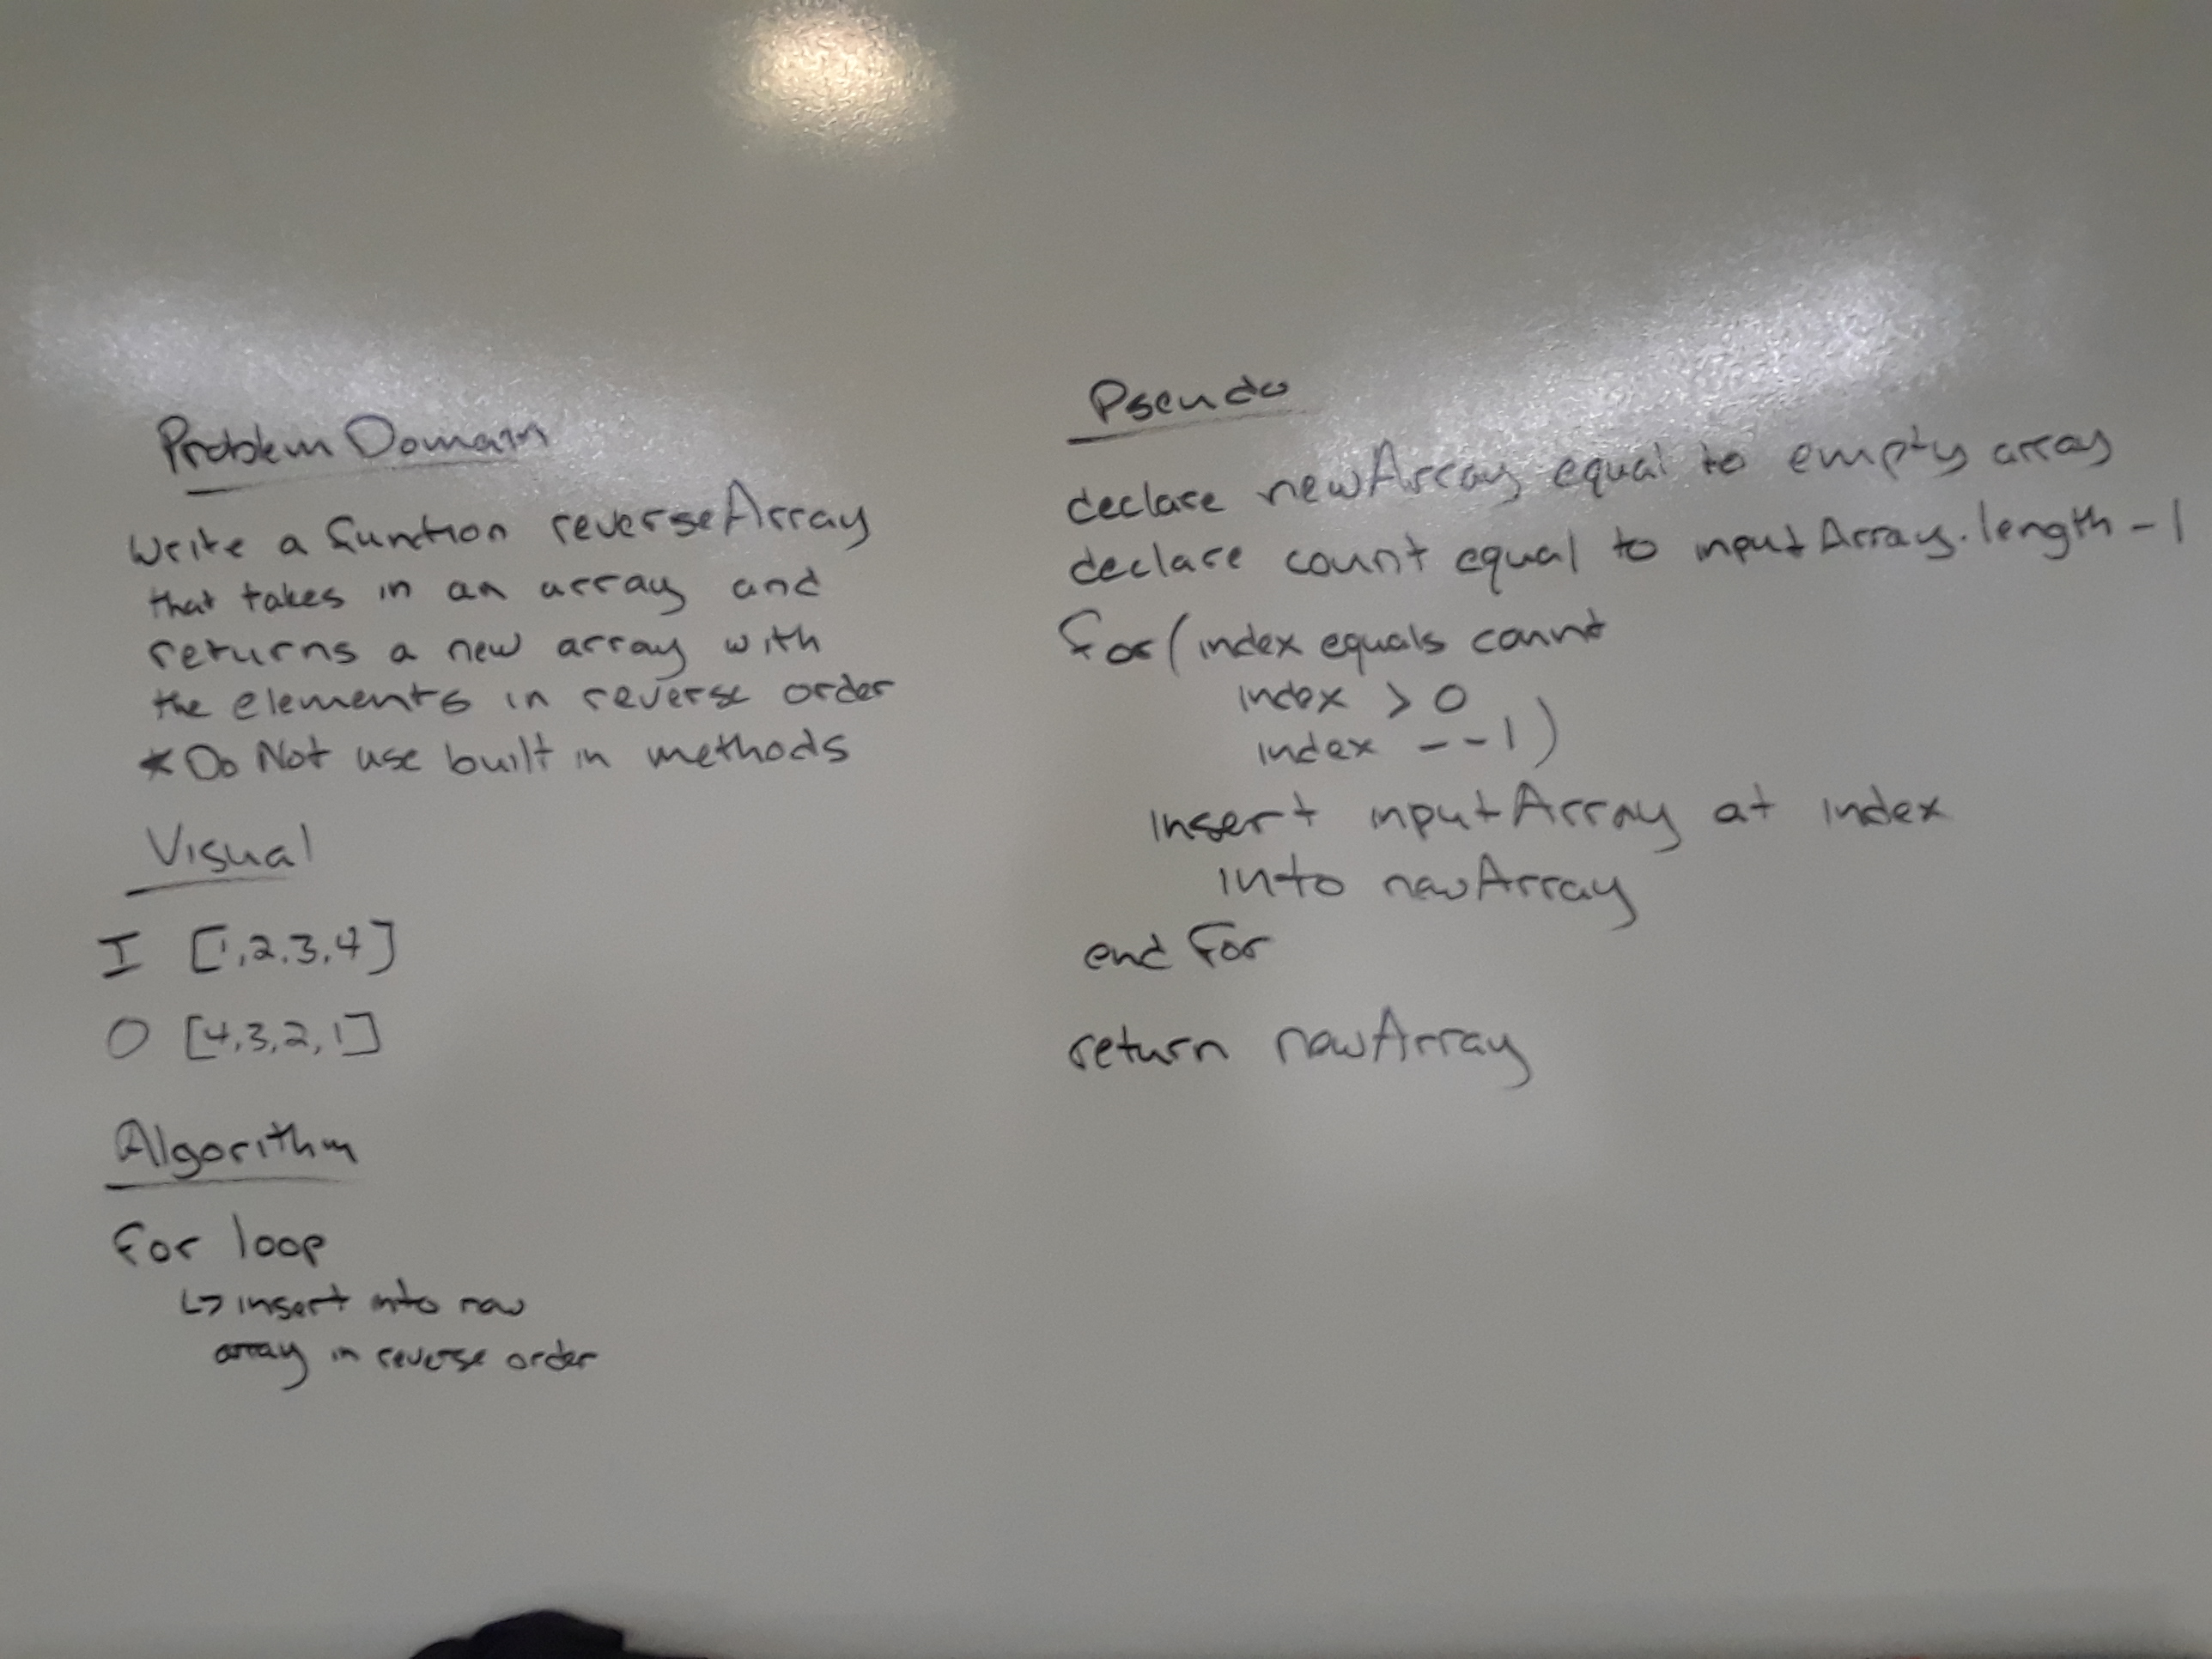 Problem Domain
Write a function reverseArray
that takes in an array and
returns a new array with
the elements in reverse order
* Do Not use built in methods
Visual
I [1,2,3,4]
O [4,3,2,1]
Algorithm
for loop
↳ insert into new
array in reverse order
Pseudo
declare newArray equal to empty array
declare count equal to inputArray.length - 1
for( index equals count
index > 0
index - - 1 )
insert inputArray at index
into newArray
end for
return newArray